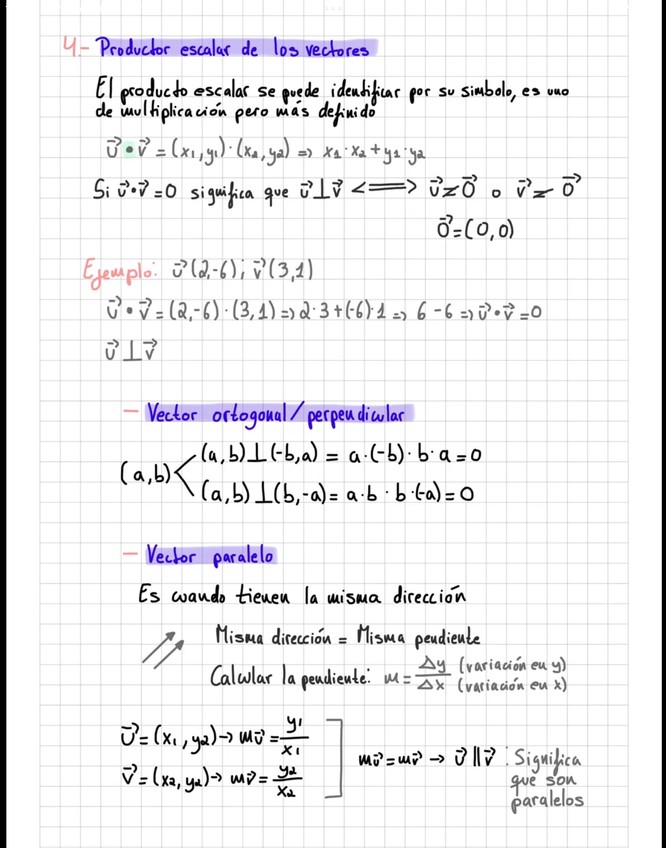 4.- Productor escalar de los vectores
El producto escalar se puede identificar por su simbolo, es uno
de multiplicación pero más definido
u⃗ • v⃗ = (x1, y1) · (x2, y2) => x1 · x2 + y1 · y2
Si u⃗ • v⃗ = 0 significa que u⃗ ⊥ v⃗ <==> u⃗ ≠ 0⃗ o v⃗ ≠ 0⃗
0⃗ = (0,0)
Ejemplo: u⃗ (2,-6); v⃗ (3,1)
u⃗ • v⃗ = (2,-6) · (3,1) => 2·3 + (-6)·1 => 6 - 6 => u⃗ • v⃗ = 0
u⃗ ⊥ v⃗
- Vector ortogonal/perpendicular
(a,b) ⊥ (-b,a) = a·(-b)· b· a = 0
(a,b) <
(a,b) ⊥ (b,-a) = a·b · b·(-a) = 0
- Vector paralelo
Es cuando tienen la misma dirección
Misma dirección = Misma pendiente
Calcular la pendiente: m = Δy/Δx (variación en y) (variación en x)
u⃗ = (x1, y2) → mu⃗ = y1/x1
v⃗ = (x2, y2) → mv⃗ = y2/x2
mu⃗ = mv⃗ → u⃗ ∥ v⃗ : Significa
que son
paralelos